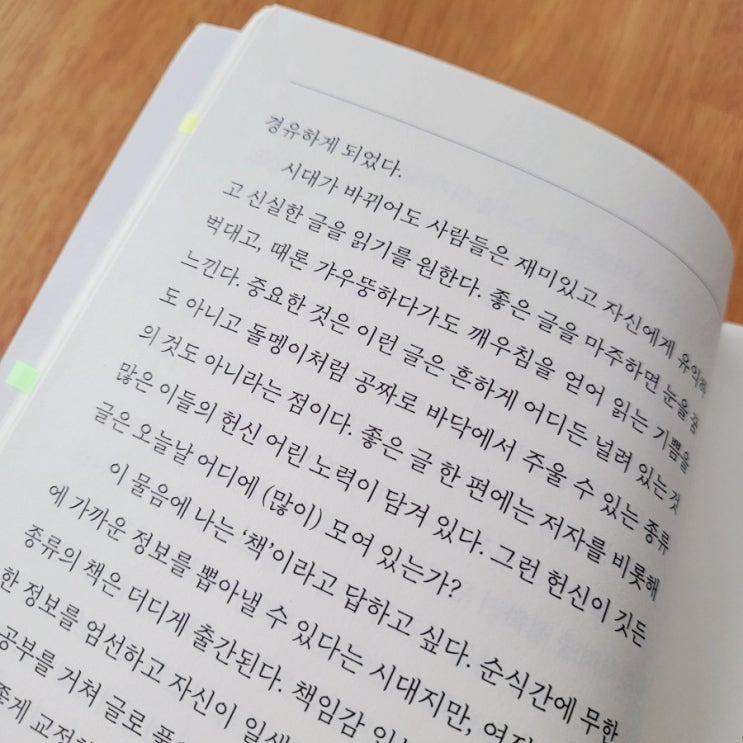 경유하게 되었다.
시대가 바뀌어도 사람들은 재미있고 자신에게 유익하
고 신실한 글을 읽기를 원한다. 좋은 글을 마주하면 눈을 끔
벅대고, 때론 갸우뚱하다가도 깨우침을 얻어 읽는 기쁨을
느낀다. 중요한 것은 이런 글은 흔하게 어디든 널려 있는 것
도 아니고 돌멩이처럼 공짜로 바닥에서 주울 수 있는 종류
의 것도 아니라는 점이다. 좋은 글 한 편에는 저자를 비롯해
많은 이들의 헌신 어린 노력이 담겨 있다. 그런 헌신이 깃든
글은 오늘날 어디에 (많이) 모여 있는가?
이 물음에 나는 ‘책’이라고 답하고 싶다. 순식간에 무한
에 가까운 정보를 뽑아낼 수 있다는 시대지만,
종류의 책은 더디게 출간된다. 책임감
한 정보를 엄선하고 자신이
공부를 거쳐 글로